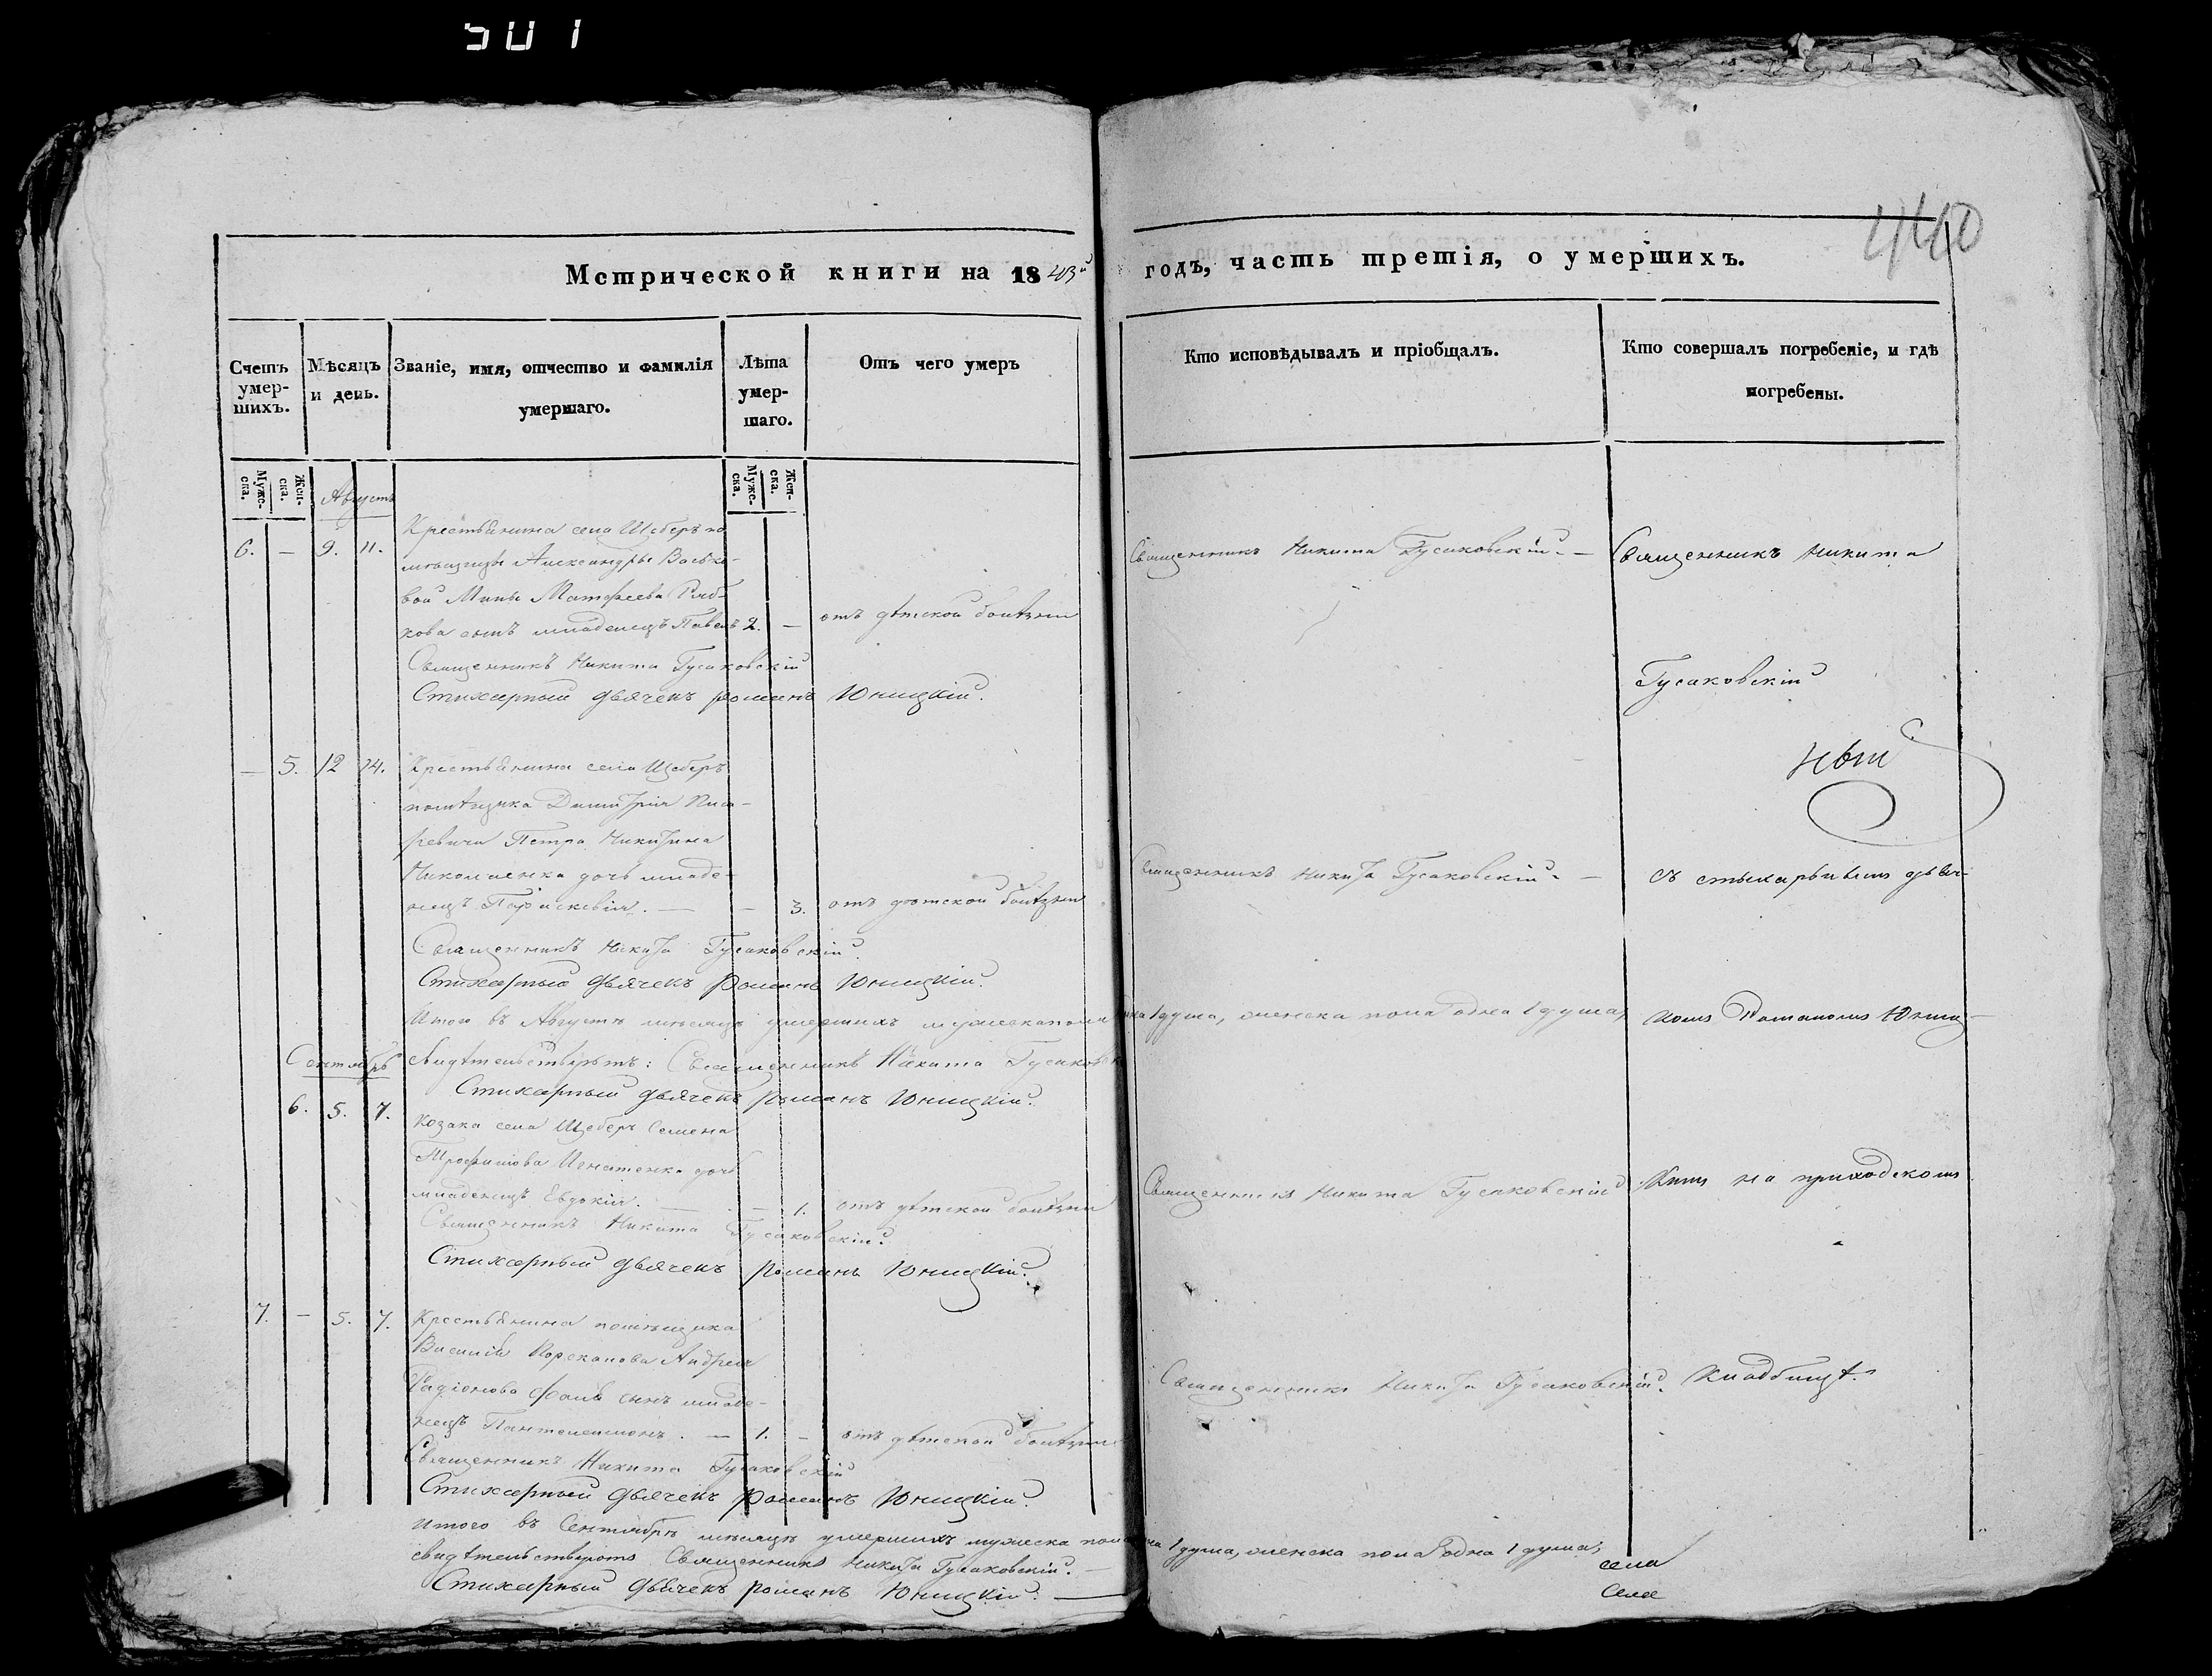 501
440
Метрической книги на 1843й годъ, часть третія, о умершихъ.
Счетъ умер-шихъ.
Мѣсяцъ и день.
Званіе, имя, отчество и фамилія умершаго.
Лѣта умер-шаго.
Отъ чего умеръ
Кто исповѣдывалъ и пріобщалъ.
Кто совершалъ погребеніе, и гдѣ погребены.
Муже-ска.
Жен-ска.
Муже-ска.
Жен-ска.
Августъ
6. — 9. 11.
Крестьянина села Щеберъ по
мѣщицы Александры Васько-
вой Мины Матфеева Ряб-
кова сынъ младенецъ Павелъ 2. — отъ дѣтской болѣзни
Священникъ Никита Гусаковскій. —
Священникъ Никита
Священникъ Никита Гусаковскій
Стихарный дьячекъ Романъ Юницкій.
Гусаковскій
— 5. 12 14.
Крестьянина села Щеберъ
помѣщика Димитрія Писа-
ревича Петра Никитина
Николаенка дочь младе-
нецъ Параскевія. — — 3. отъ дѣтской болѣзни
Священникъ Никита Гусаковскій. —
съ стихарнымъ дьяч-
Священникъ Никита Гусаковскій.
Стихарный дьячекъ Романъ Юницкій.
Итого въ Августѣ мѣсяцѣ умершихъ мужеска пола одна 1 душа, женска пола одна 1 душа,
комъ Романомъ Юниц-
Сентябрь
свидѣтельствуютъ: Священникъ Никита Гусаковскій
Стихарный дьячекъ Романъ Юницкій.
6. 5. 7.
Козака села Щеберъ Семена
Трофимова Игнатенка дочь
младенецъ Евдокія. — — 1. отъ дѣтской болѣзни
Священникъ Никита Гусаковскій
кимъ на приходскомъ
Священникъ Никита Гусаковскій.
Стихарный дьячекъ Романъ Юницкій.
7. — 5. 7.
Крестьянина помѣщика
Василія Корсканова Андрея
Радіонова сынъ младе-
нецъ Пантелеимонъ. — 1. — отъ дѣтской болѣзни
Священникъ Никита Гусаковскій.
кладбищѣ.
Священникъ Никита Гусаковскій
Стихарный дьячекъ Романъ Юницкій.
Итого въ Сентябрѣ мѣсяцѣ умершихъ мужеска пола одна 1 душа, женска пола одна 1 душа,
свидѣтельствуютъ Священникъ Никита Гусаковскій. —
Стихарный дьячекъ Романъ Юницкій. —
села
Села